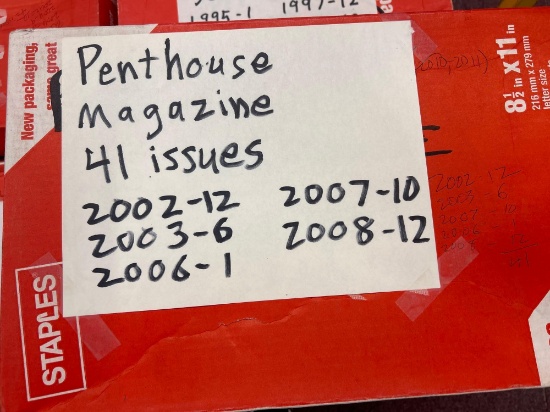 1995-1 1997-12
New packaging,
same great
Penthouse
Magazine
41 issues
2002-12 2007-10
2003-6 2008-12
2006-1
STAPLES
8 1/2 in x 11 in
216 mm x 279 mm
letter size
2010, 2011)
2002 12